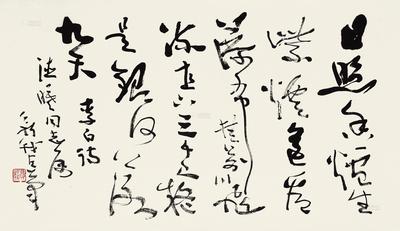 日照香爐生
紫煙遥看
瀑布挂前川飛
流直下三千尺疑
是銀河落
九天
李白詩
同志属